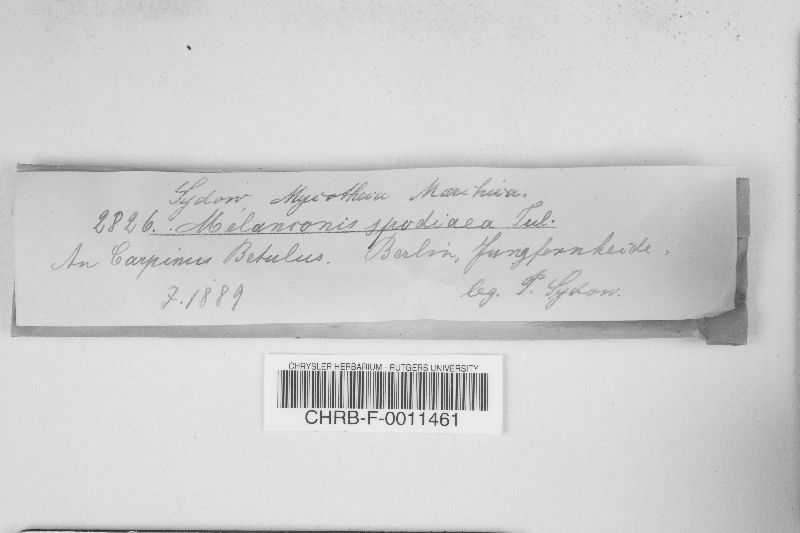 Sydow Mycotheca Marchica.
2826. Melanconis spodiaea Tul.
An Carpinus Betulus. Berlin, Jungfernheide.
7.1889 leg. P. Sydow.
CHRYSLER HERBARIUM - RUTGERS UNIVERSITY
CHRB-F-0011461